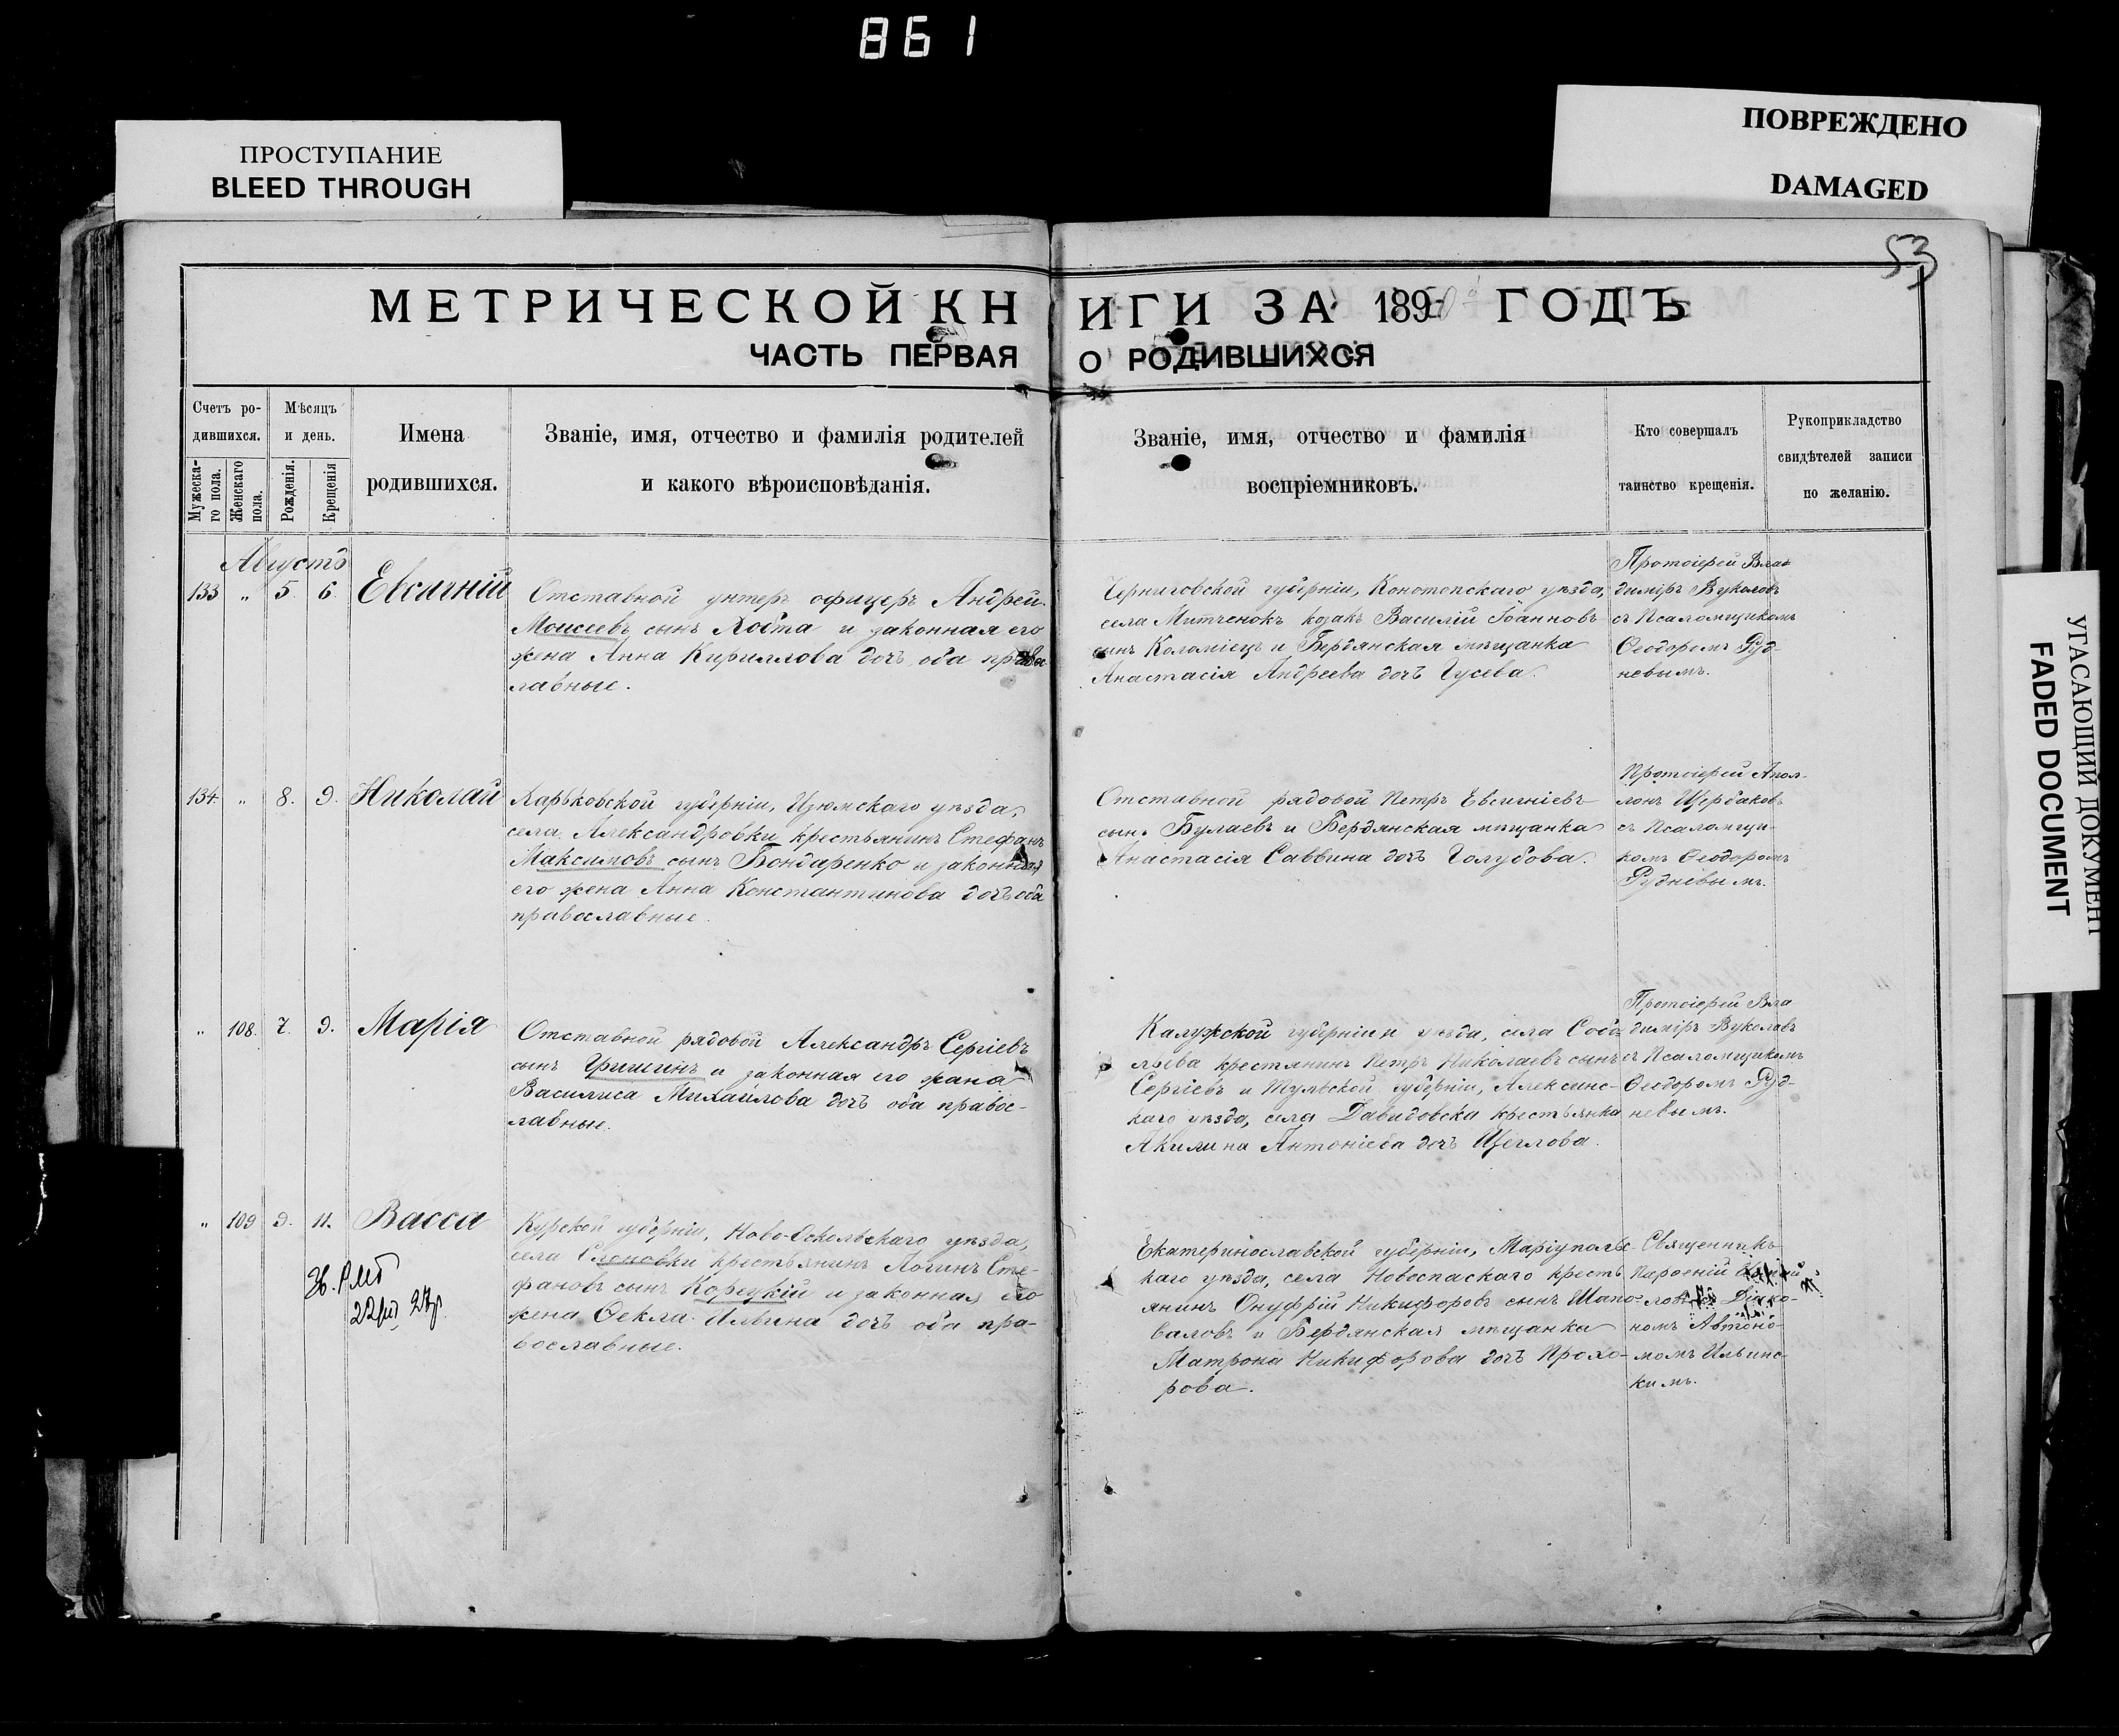 861
ПРОСТУПАНИЕ
BLEED THROUGH
ПОВРЕЖДЕНО
DAMAGED
53
МЕТРИЧЕСКОЙ КНИГИ ЗА 189 ГОДЪ
ЧАСТЬ ПЕРВАЯ О РОДИВШИХСЯ
Счетъ ро-
дившихся.
Мужеска-
го пола.
Женскаго
пола.
Мѣсяцъ
и день.
Рожденія.
Крещенія
Имена
родившихся.
Званіе, имя, отчество и фамилія родителей
и какого вѣроисповѣданія.
Званіе, имя, отчество и фамилія
воспріемниковъ.
Кто совершалъ
таинство крещенія.
Рукоприкладство
свидѣтелей записи
по желанію.
Августъ
133 „ 5. 6. Евсигній
Отставной унтеръ офицеръ Андрей
Моисеевъ сынъ Хоста и законная его
жена Анна Кириллова дочь, оба право
лавные.
Черниговской губерніи, Конотопскаго уѣзда,
села Митченокъ козакъ Василій Іоанновъ
сынъ Коломіецъ и Бердянская мѣщанка
Анастасія Андреева дочь Гусева.
Протоіерей Вла-
диміръ Вуколовъ
съ Псаломщикомъ
Ѳеодоромъ Руд-
невымъ.
134. „ 8. 9. Николай
Харьковской губерніи, Изюмскаго уѣзда,
села Александровки крестьянинъ Стефанъ
Максимовъ сынъ Бондаренко и законная
его жена Анна Константинова дочь оба
православные.
Отставной рядовой Петръ Евсигніевъ
сынъ Булаевъ и Бердянская мѣщанка
Анастасія Саввина дочь Голубова.
Протоіерей Апол-
лонъ Щербаковъ
съ Псаломщи-
комъ Ѳеодоромъ
Рудневымъ.
„ 108. 7. 9. Марія
Отставной рядовой Александръ Сергіевъ
сынъ Гришинъ и законная его жена
Василиса Михайлова дочь оба правос-
лавные.
Калужской губерніи и уѣзда, села
крестянинъ Петръ Николаевъ сынъ
Сергіевъ и Тульской губерніи, Алексинс-
каго уѣзда, села Давидовска крестьянка
Акилина Антоніева дочь Щеглова.
Протоіерей Вла
диміръ Вуколовъ
съ Псаломщикомъ
Ѳеодоромъ Руд-
невымъ.
„ 109 9. 11. Васса
Курской губерніи, Ново-Оскольскаго уѣзда,
села Слоновки крестьянинъ Логинъ Сте-
фановъ сынъ Корецкій и законная его
жена Ѳекла Ильина дочь оба пра-
вославные.
Екатеринославской губерніи, Маріуполь-
каго уѣзда, села Новоспаскаго кресть
янинъ Онуфрій Никифоровъ сынъ Шапо-
валовъ и Бердянская мѣщанка
Матрона Никифорова дочь Прохо-
рова.
Священникъ
Діако-
номъ Автоно-
момъ Ильинс-
кимъ.
УГАСАЮЩИЙ ДОКУМЕНТ
FADED DOCUMENT